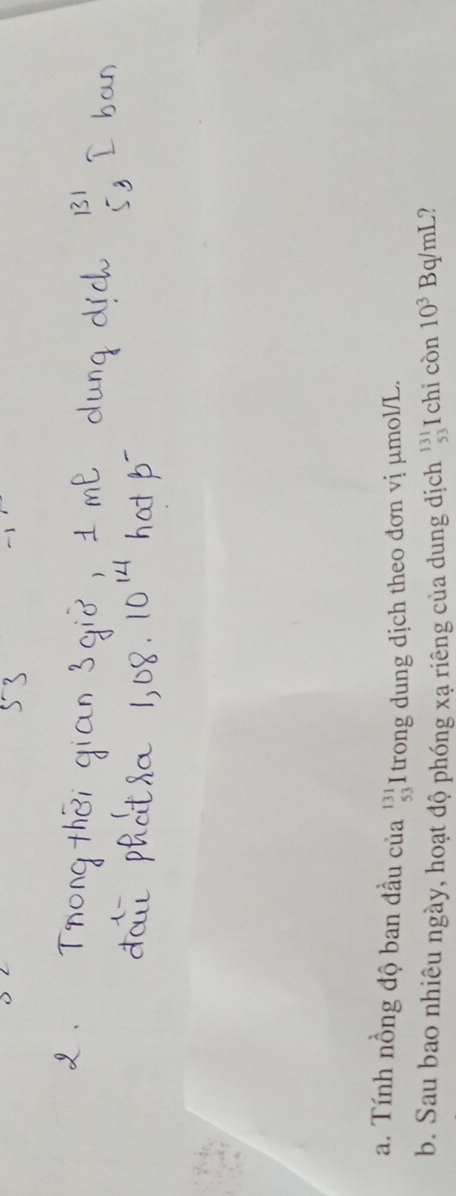 2. Trong thời gian 3 giờ, 1 ml dung dịch ¹³¹₅₃ I ban
đầu phát ra 1,08.10¹⁴ hạt β⁻
a. Tính nồng độ ban đầu của ¹³¹₅₃I trong dung dịch theo đơn vị μmol/L.
b. Sau bao nhiêu ngày, hoạt độ phóng xạ riêng của dung dịch ¹³¹₅₃I chỉ còn 10³ Bq/mL?